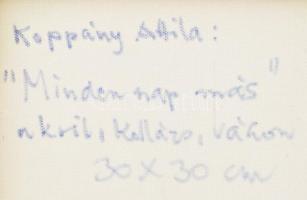 Koppány Attila:
"Minden nap más"
akril, kollázs, vászon
30 X 30 cm